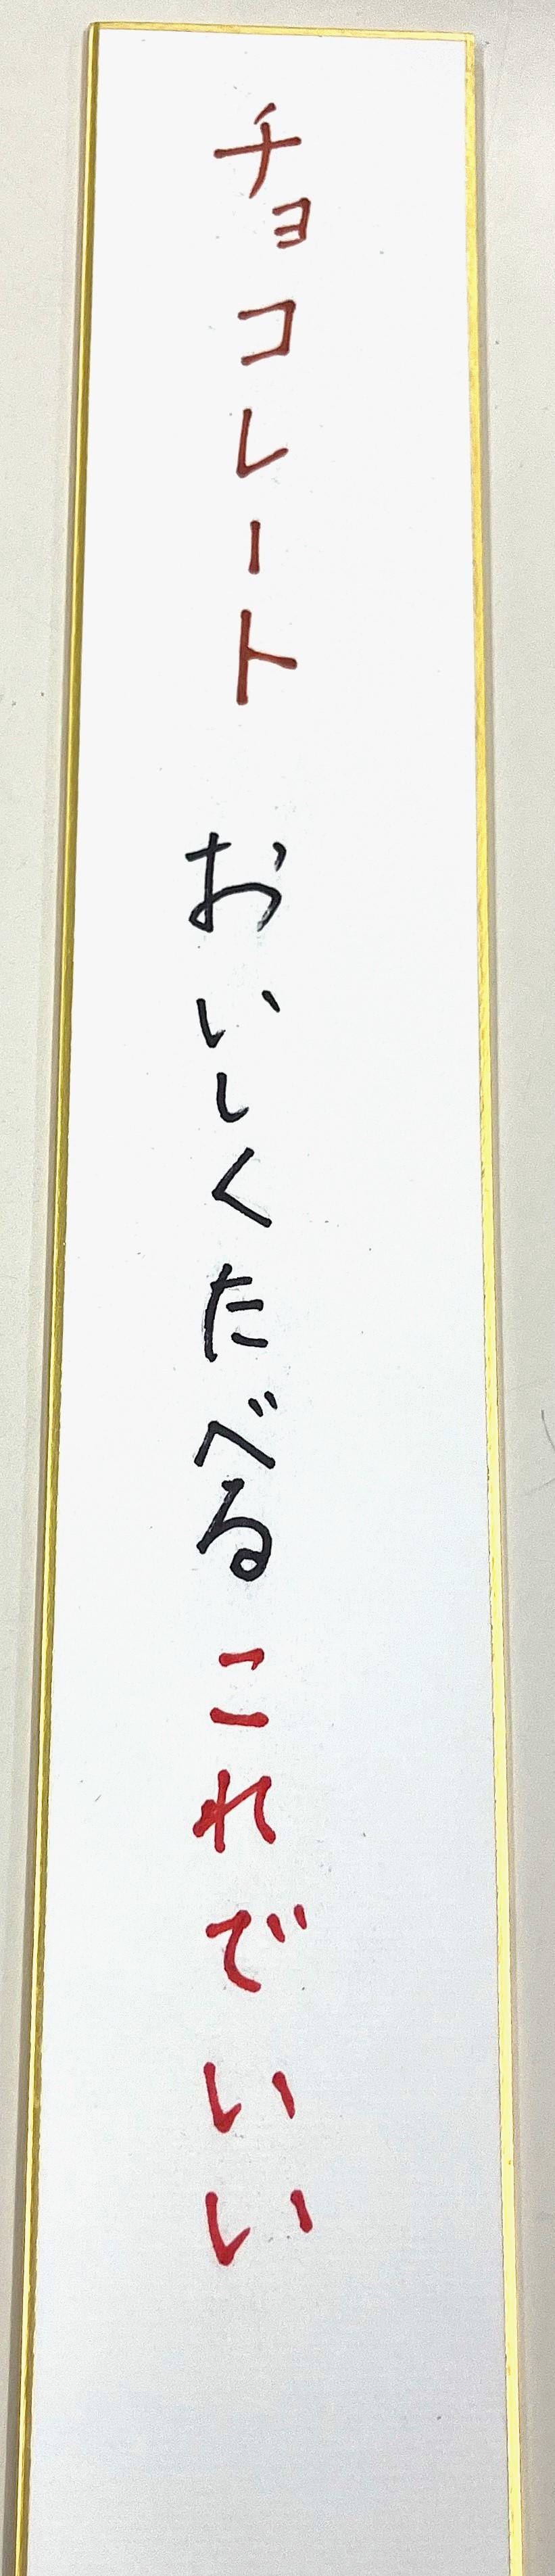 チョコレート おいしくたべる これでいい